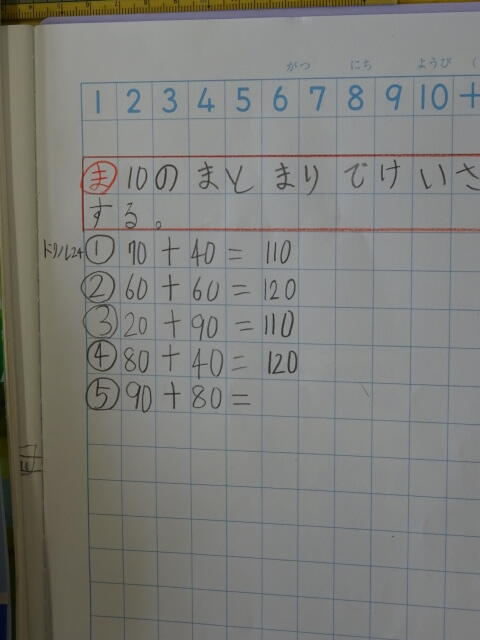 がつ にち ようび (
1 2 3 4 5 6 7 8 9 10 +
ま 10の まとまりで けいさ
する。
ドリル24 ① 70 + 40 = 110
② 60 + 60 = 120
③ 20 + 90 = 110
④ 80 + 40 = 120
⑤ 90 + 80 =